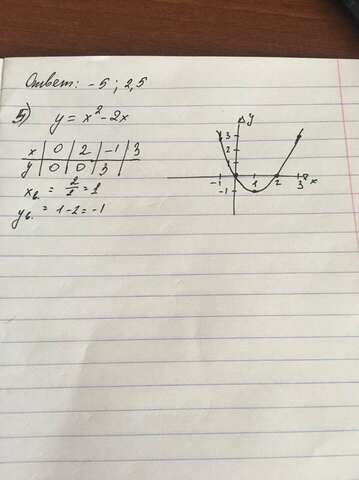 Ответ: -5; 2,5
5) y = x² - 2x
x | 0 | 2 | -1 | 3
y | 0 | 0 | 3 |
xв. = 2/1 = 1
yв. = 1-2 = -1
y
3
2
-1 1 2 3 x
-1